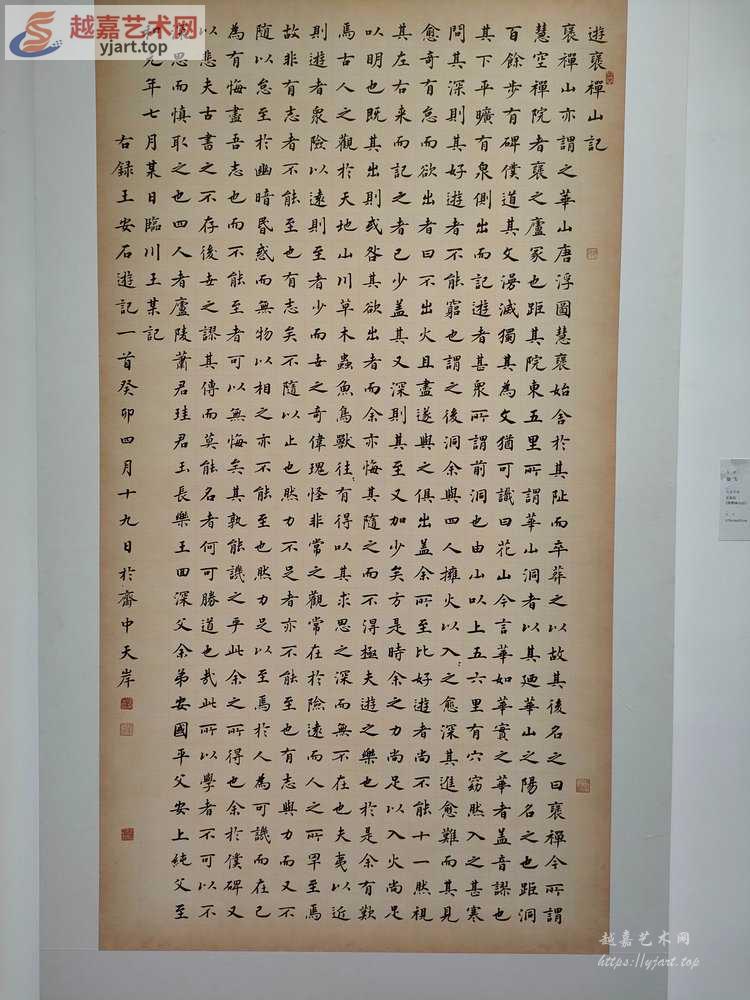 越嘉艺术网
yjart.top
遊褒禪山記
褒禪山亦謂之華山唐浮圖慧褒始舍於其阯而卒葬之以故其後名之曰褒禪今所謂
慧空禪院者褒之廬冢也距其院東五里所謂華山洞者以其廼華山之陽名之也距洞
百餘步有碑僕道其文漫滅獨其為文猶可識曰花山今言華如華實之華者蓋音謬也
其下平曠有泉側出而記遊者甚衆所謂前洞也由山以上五六里有穴窈然入之甚寒
問其深則其好遊者不能窮也謂之後洞余與四人擁火以入之愈深其進愈難而其見
愈奇有怠而欲出者曰不出火且盡遂與之俱出蓋余所至比好遊者尚不能十一然視
其左右来而記之者已少蓋其又深則其至又加少矣方是時余之力尚足以入火尚足
以明也既其出則或咎其欲出者而余亦悔其隨之而不得極夫遊之樂也於是余有歎
焉古人之觀於天地山川草木蟲魚鳥獸往〻有得以其求思之深而無不在也夫夷以近
則遊者衆險以遠則至者少而世之奇偉瑰怪非常之觀常在於險遠而人之所罕至焉
故非有志者不能至也有志矣不隨以止也然力不足者亦不能至也有志與力而又不
隨以怠至於幽暗昏惑而無物以相之亦不能至也然力足以至焉於人為可譏而在己
為有悔盡吾志也而不能至者可以無悔矣其孰能譏之乎此余之所得也余於僕碑又
以悲夫古書之不存後世之謬其傳而莫能名者何可勝道也哉此所以學者不可以不
深思而慎取之也四人者廬陵蕭君珪君玉長樂王回深父余弟安國平父安上純父至
和元年七月某日臨川王某記
右錄王安石遊記一首癸卯四月十九日於齋中天岸
越嘉艺术网
https://yjart.top